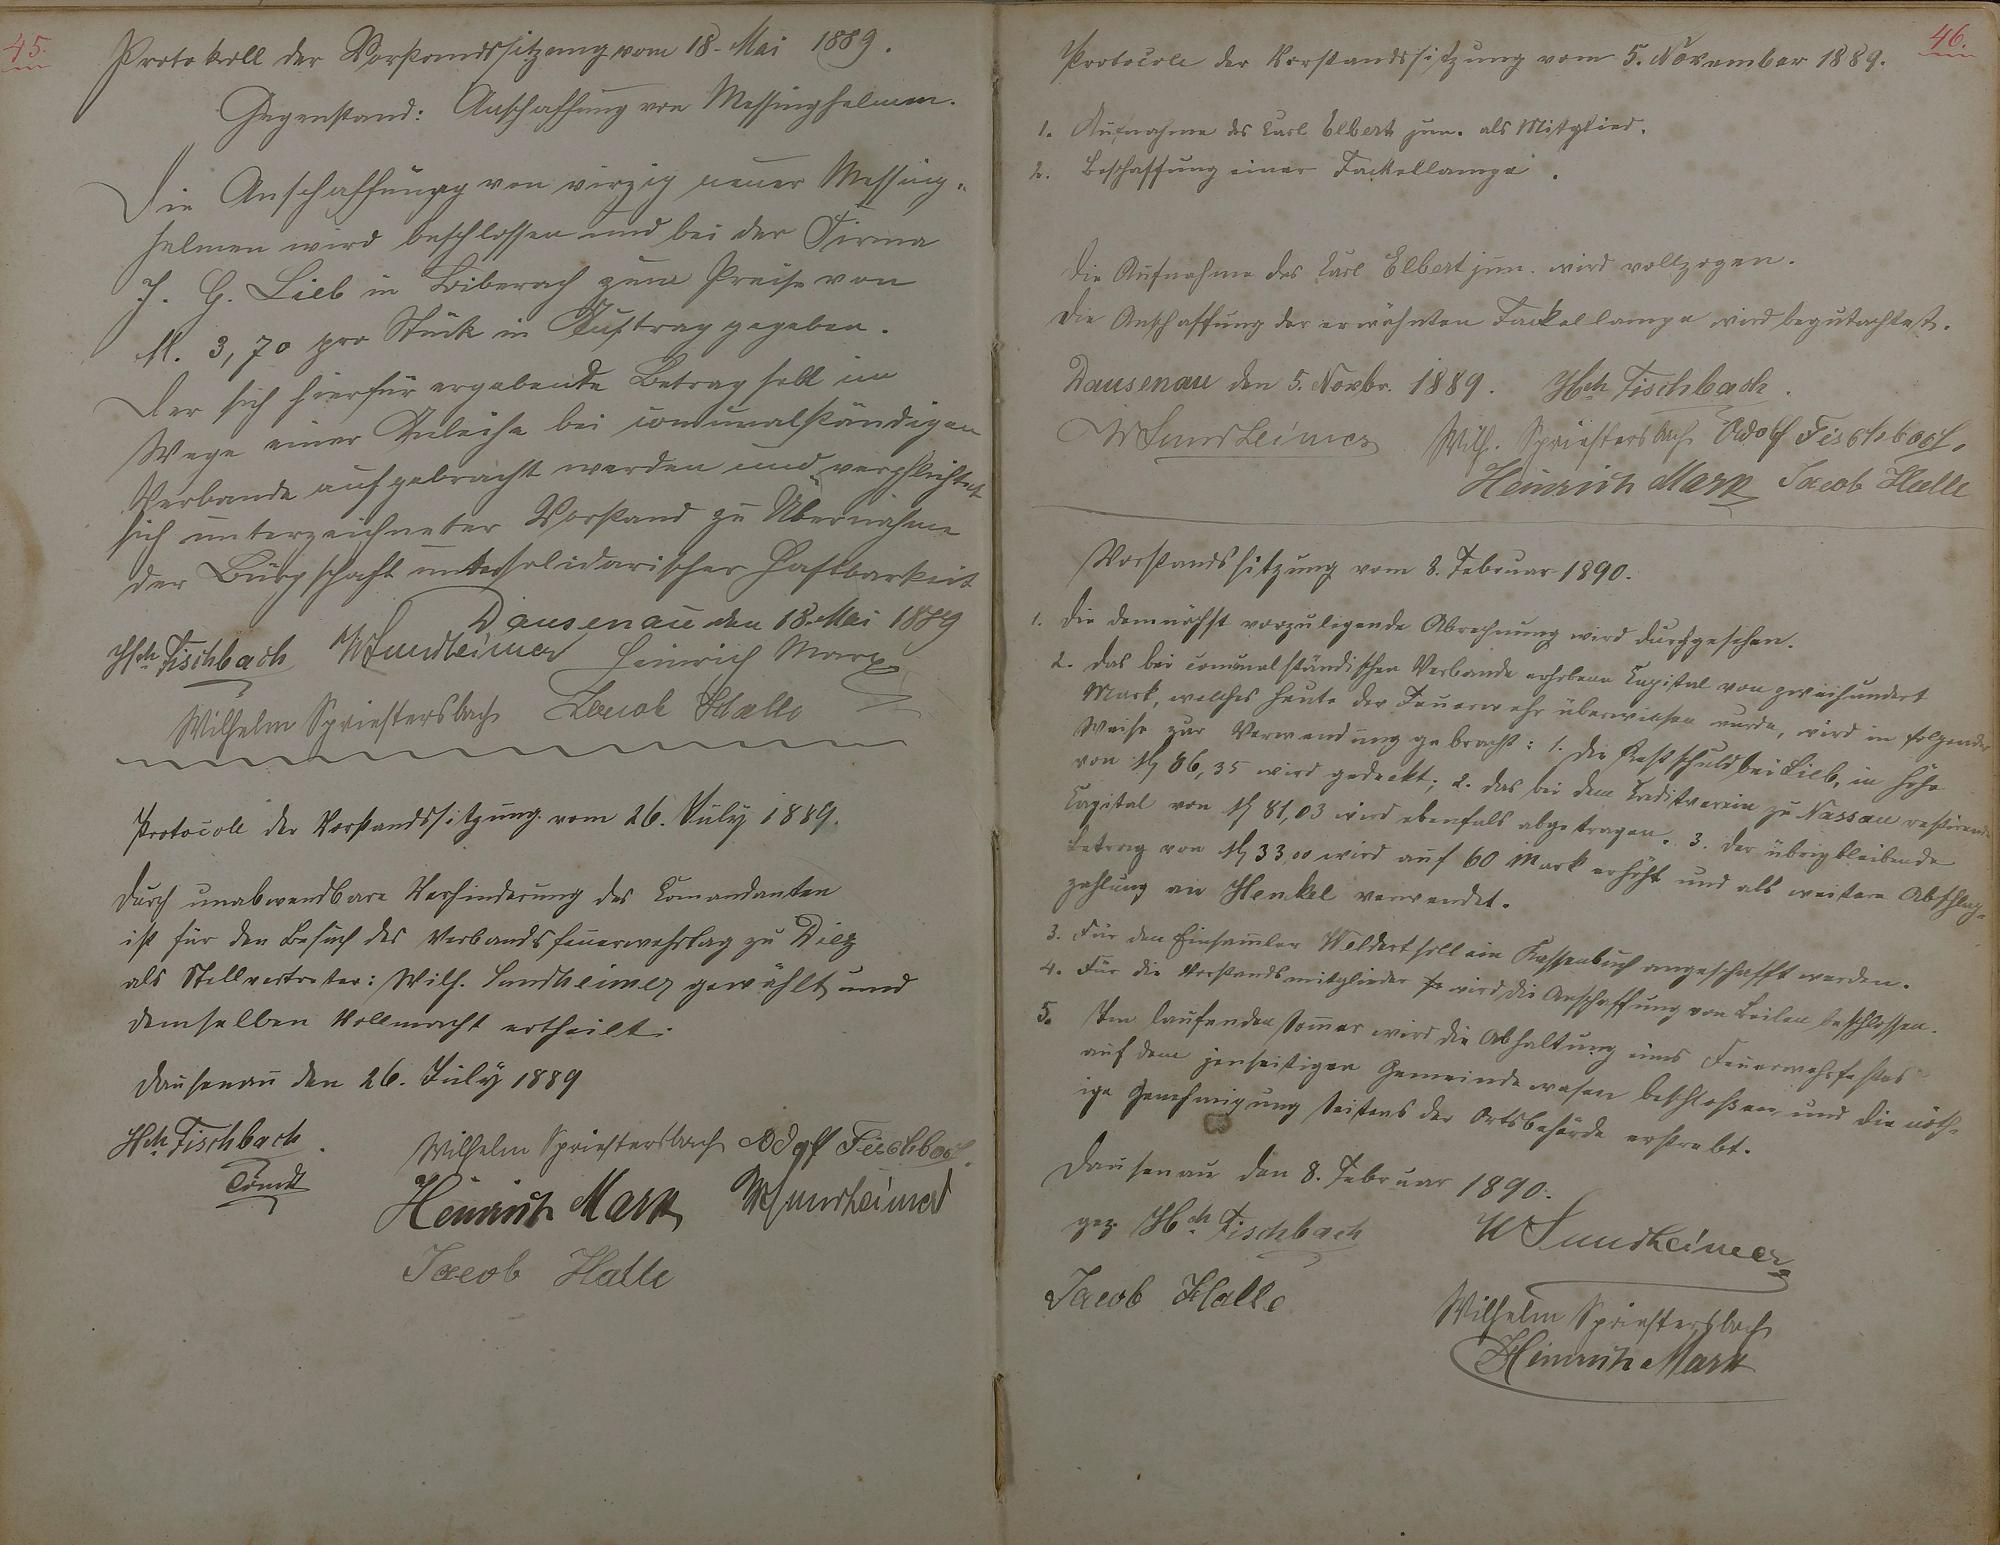 45.
Protokoll der Vorstandssitzung vom 18. Mai 1889.
Gegenstand: Anschaffung von Messinghelmen.
Die Anschaffung von vierzig neuer Messing-
helmen wird beschlossen und bei der Firma
J. G. Lieb in Biberach zum Preise von
M. 3,70 pro Stück in Auftrag gegeben.
Der sich hierfür ergebende Betrag soll im
Wege einer Anleihe bei communalständigen
Verbande aufgebracht werden und verpflichtet
sich unterzeichneter Vorstand zu Übernahme
der Bürgschaft unter solidarischer Haftbarkeit
Dausenau den 18. Mai 1889
Hch Fischbach W Sundheimer Heinrich Marx
Wilhelm Spriestersbach Jacob Halle
Protocoll der Vorstandssitzung vom 26. July 1889.
Durch unabwendbare Verhinderung des Comandanten
ist für den Besuch des Verbandsfeuerwehrtag zu Diez
als Stellvertreter: Wilh. Sundheimer gewählt und
demselben Vollmacht ertheilt.
Dausenau den 26. July 1889
Hch Fischbach. Wilhelm Spriestersbach Adolf Fischbach.
Comdt Heinrich Marx W Sundheimer
Jacob Halle
46.
Protocoll der Vorstandssitzung vom 5. November 1889.
1. Aufnahme des Carl Elbert jun. als Mitglied.
2. Beschaffung einer Fackellampe.
Die Aufnahme des Carl Elbert jun. wird vollzogen.
Die Anschaffung der erwähnten Fackellampe wird begutachtet.
Dausenau den 5. Novbr. 1889. Hch Fischbach.
W Sundheimer Wilh. Spriestersbach Adolf Fischbach.
Heinrich Marx Jacob Halle
Vorstandssitzung vom 8. Februar 1890.
1. Die demnächst vorzulegende Abrechnung wird durchgesehen.
2. Das bei communalständischen Verbande erhobene Capital von zweihundert
Mark, welches heute der Feuerwehr überwiesen wurde, wird in folgender
Weise zur Verwendung gebracht: 1. Die Restschuld bei Lieb, in Höhe
von M 86,35 wird gedeckt; 2. das bei dem Creditverein zu Nassau restirende
Capital von M 81,03 wird ebenfals abgetragen. 3. Der übrigbleibende
Betrag von M 33,00 wird auf 60 Mark erhöht und als weitere Abschlag-
zahlung an Henkel verwendet.
3. Für den Einsammler Weldert soll ein Kassenbuch angeschafft werden.
4. Für die Vorstandsmitglieder wird die Anschaffung von Beilen beschlossen.
5. Im laufenden Sommer wird die Abhaltung eines Feuerwehrfestes
auf dem jenseitigen Gemeindewasen beschloßen und die nöth-
ige Genehmigung Seitens der Ortsbehörde erstrebt.
Dausenau den 8. Februar 1890.
gez. Hch Fischbach W Sundheimer
Jacob Halle
Wilhelm Spriestersbach
Heinrich Marx